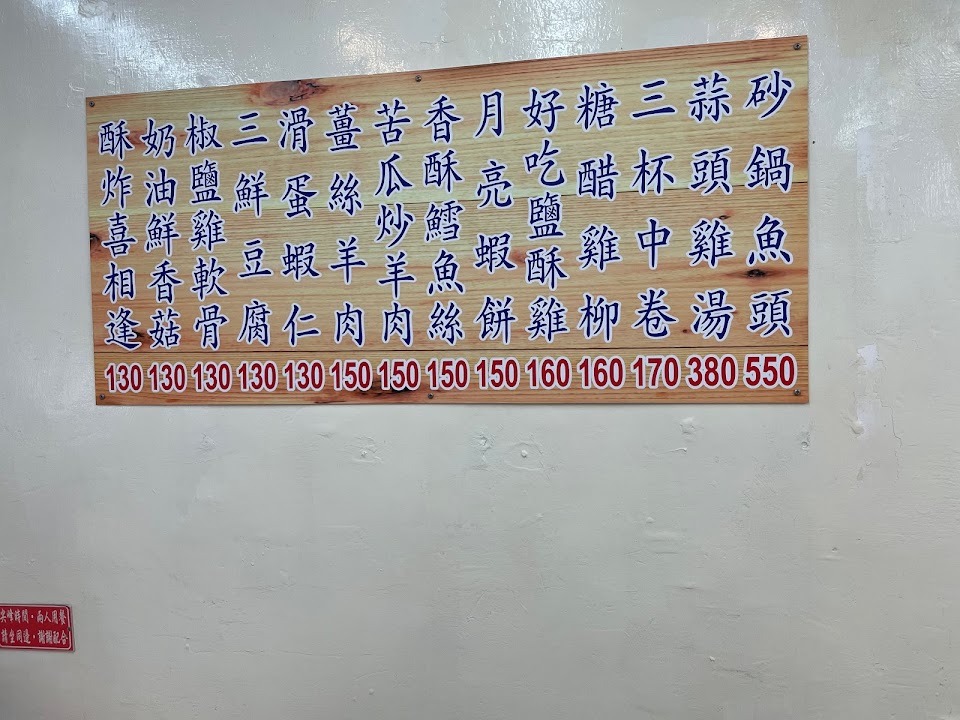 砂鍋魚頭 550
蒜頭雞湯 380
三杯中卷 170
糖醋雞柳 160
好吃鹽酥雞 160
月亮蝦餅 150
香酥鱈魚絲 150
苦瓜炒羊肉 150
薑絲羊肉 150
滑蛋蝦仁 130
三鮮豆腐 130
椒鹽雞軟骨 130
奶油鮮香菇 130
酥炸喜相逢 130
尖峰時間・兩人用餐
請坐同邊・謝謝配合